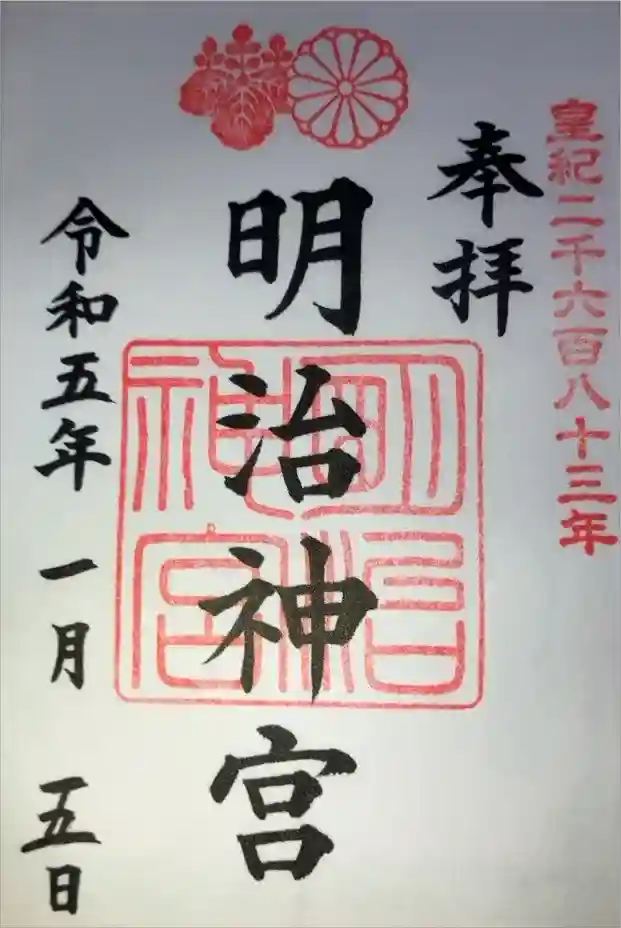 皇紀二千六百八十三年
奉拝
明治神宮
明治神宮
令和五年 一月 五日